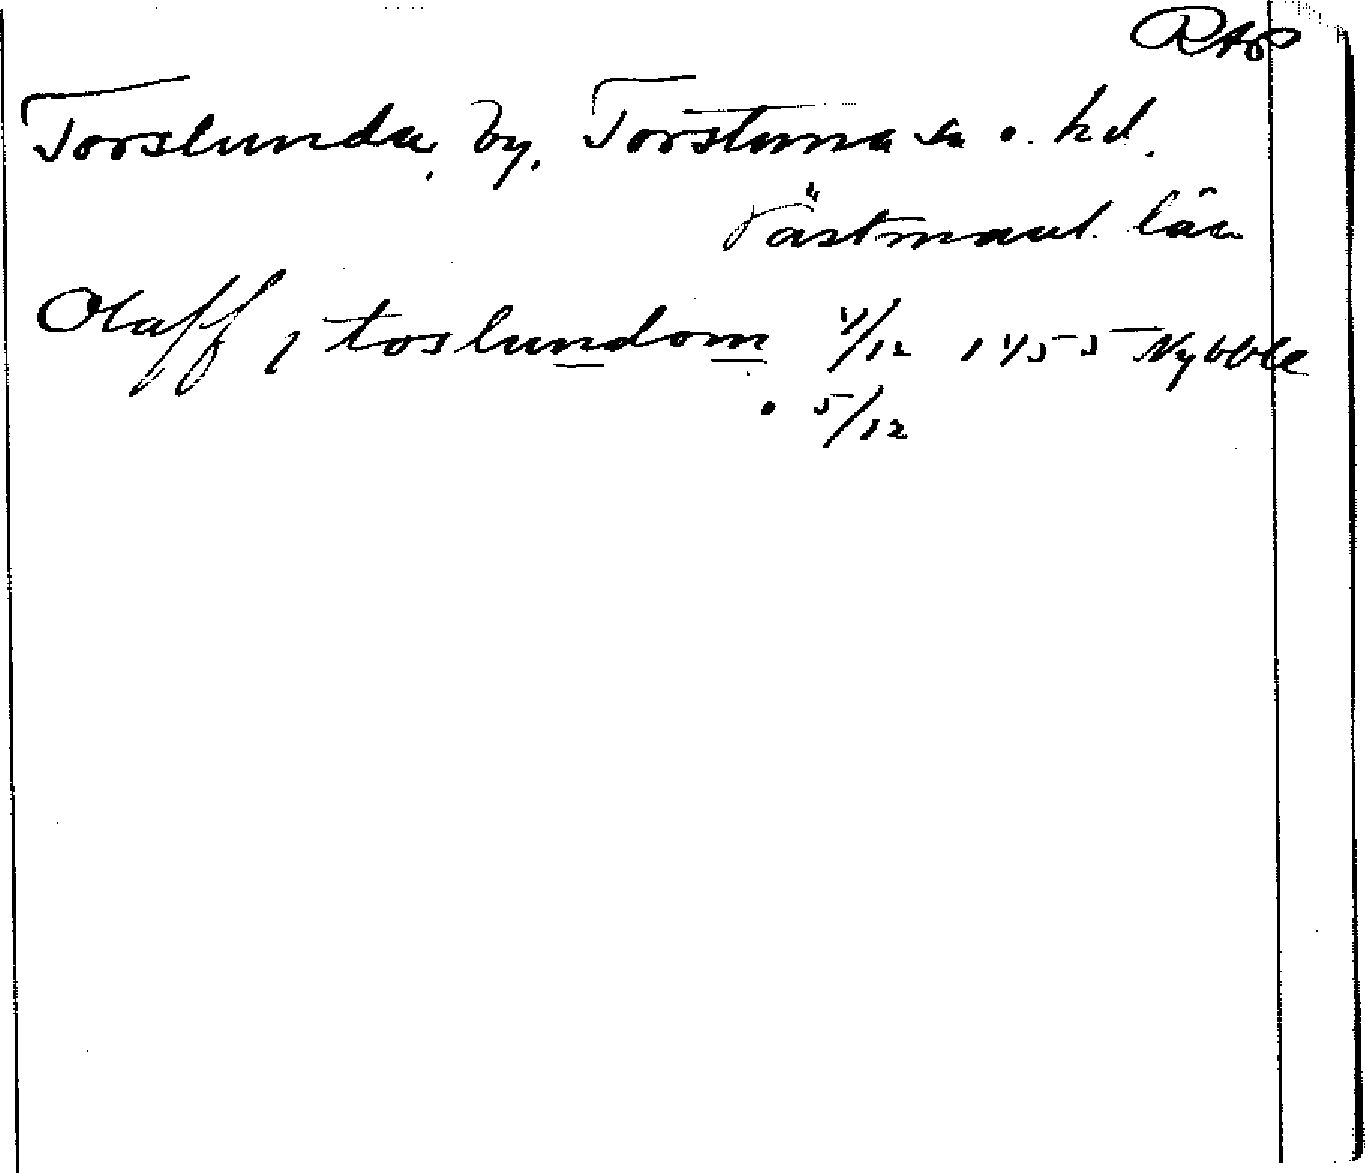 RAp
Torslunda, by, Torstuna sn o. hd.
Västmanl. län
Olaff j toslundom 4/12 1455 Nybble
o 5/12